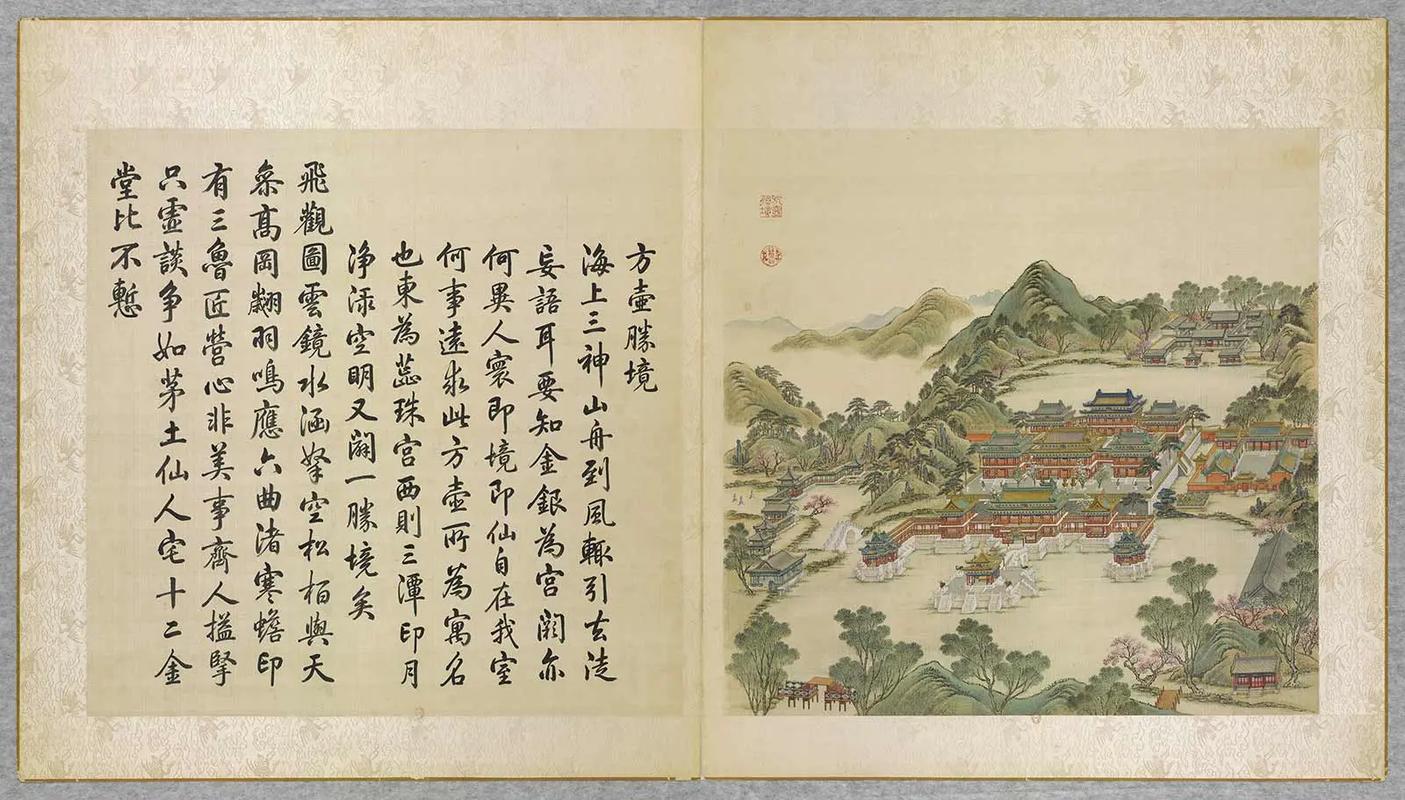 方壺勝境
海上三神山舟到風輒引去徒
妄語耳要知金銀為宮闕亦
何異人寰即境即仙自在我室
何事遠求此方壺所為寓名
也東為蕊珠宮西則三潭印月
净渌空明又闢一勝境矣
飛觀圖雲鏡水涵拏空松柏與天
叅高岡翽羽鳴應六曲渚寒蟾印
有三魯匠營心非美事齊人搤掔
只虛談争如茅土仙人宅十二金
堂比不慙